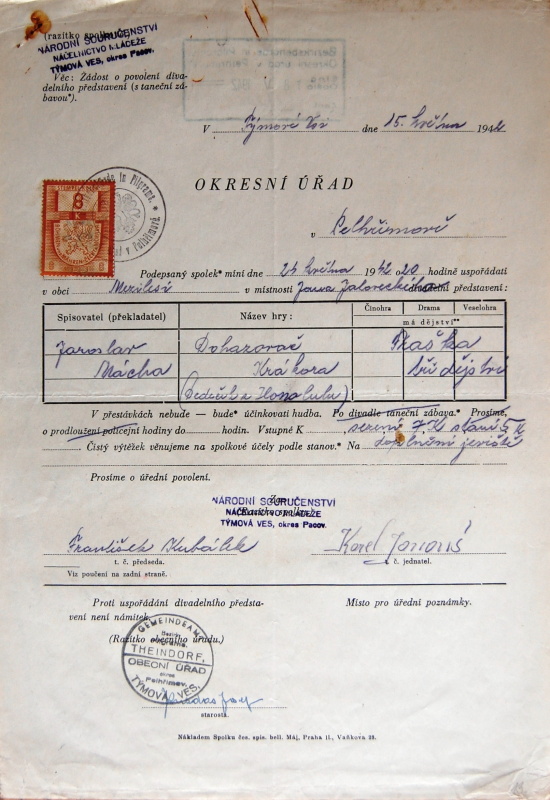 (razítko spolku.)
NÁRODNÍ SOURUČENSTVÍ
NÁČELNICTVO MLÁDEŽE
TÝMOVÁ VES, okres Pacov.
Věc: Žádost o povolení diva-
delního představení (s taneční zá-
bavou*).
V Týmové Vsi dne 15. května 1942
OKRESNÍ ÚŘAD
8
K
v Pelhřimově
Podepsaný spolek* míní dne 24 května 1942 20 hodině uspořádati
v obci Mezilesí v místnosti Jana divadelní představení:
Spisovatel (překladatel) Název hry: Činohra Drama Veselohra
má dějství**
Jaroslav Dohazovač Fraška
Mácha Krákora tři dějství
(Dědeček z Honolulu)
V přestávkách nebude — bude* účinkovati hudba. Po divadle taneční zábava.* Prosíme,
o prodloužení policejní hodiny do hodin. Vstupné K sezení 7 K stání 5 K
Čistý výtěžek věnujeme na spolkové účely podle stanov.* Na doplnění jeviště
Prosíme o úřední povolení.
(Razítko spolku.)
NÁRODNÍ SOURUČENSTVÍ
NÁČELNICTVO MLÁDEŽE
TÝMOVÁ VES, okres Pacov.
František Kubálek
t. č. předseda.
Karel
č. jednatel.
Viz poučení na zadní straně.
Proti uspořádání divadelního předsta-
vení není námitek.
Místo pro úřední poznámky.
(Razítko obecního úřadu.)
GEMEINDEAMT
Bezirk
THEINDORF,
OBECNÍ ÚŘAD
okres
Pelhřimov,
TÝMOVÁ VES,
starosta.
Nákladem Spolku čes. spis. bell. Máj, Praha II., Vaňkova 23.